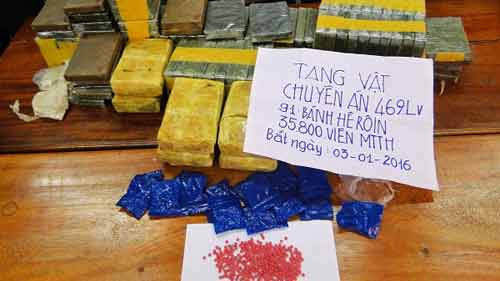 TANG VẬT
CHUYÊN ÁN 469Lv
91 BÁNH HÊRÔIN
35.800 VIÊN MTTH
Bắt ngày: 03-01-2016